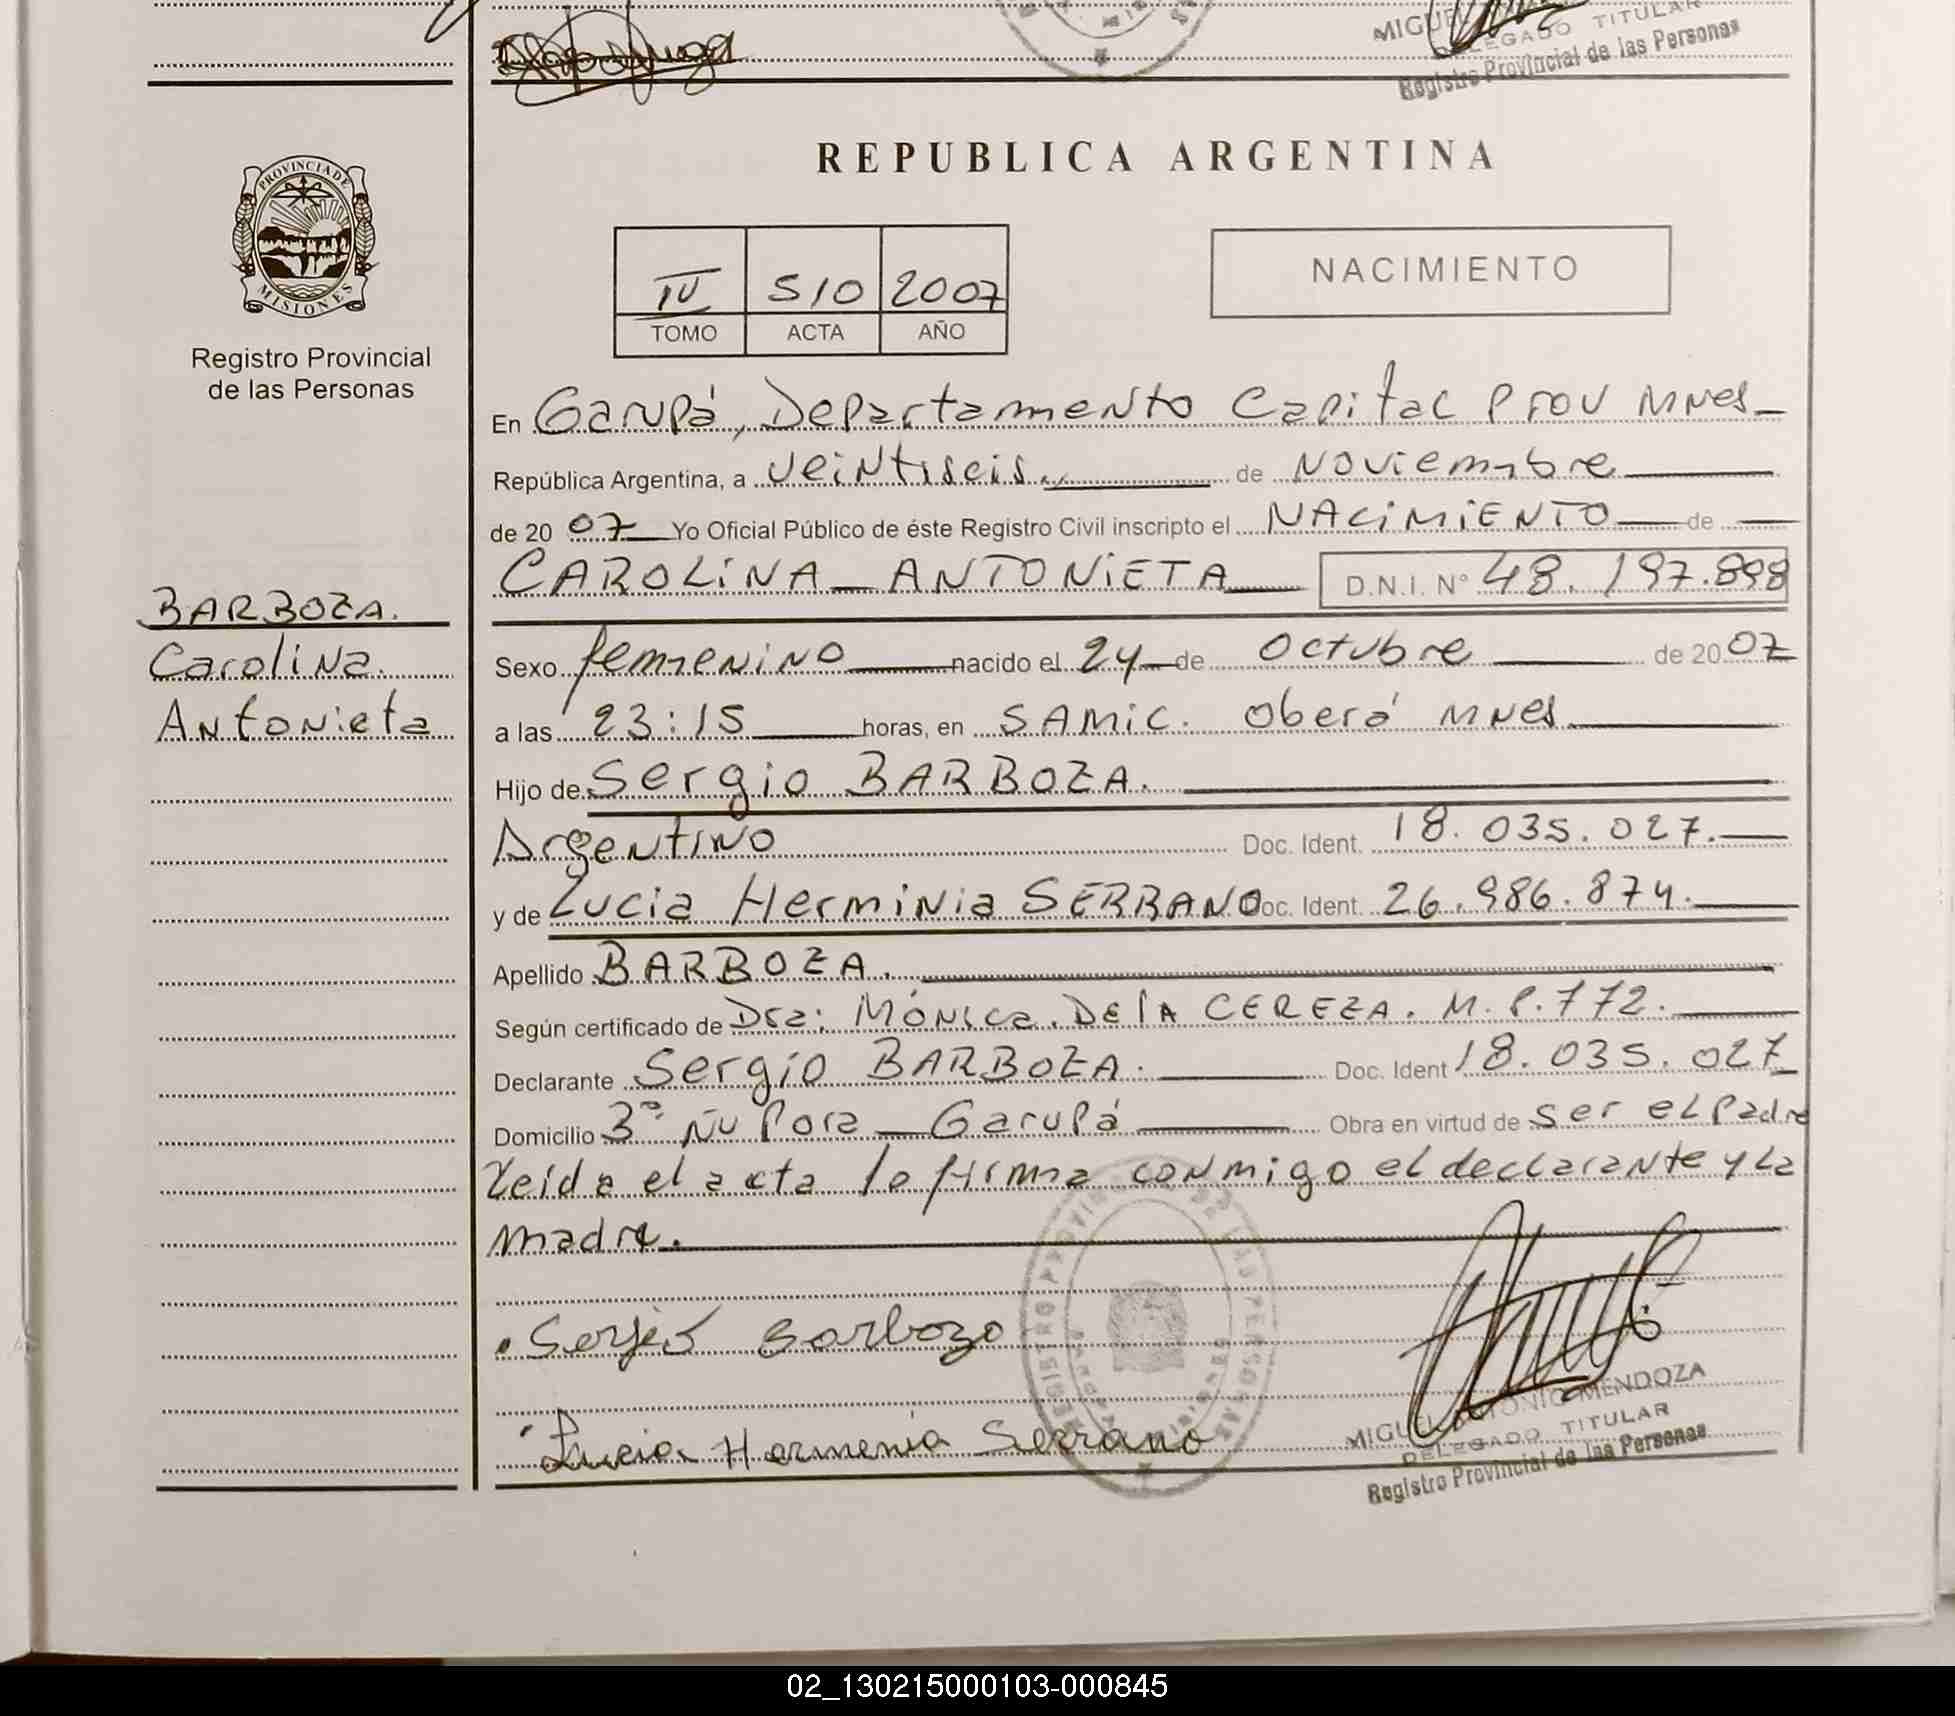 MIGUEL
DELEGADO TITULAR
Registro Provincial de las Personas
PROVINCIA DE
MISIONES
Registro Provincial
de las Personas
REPUBLICA ARGENTINA
IV 510 2007
TOMO ACTA AÑO
NACIMIENTO
En Garupá, Departamento Capital Prov Mnes
República Argentina, a veintiseis de Noviembre
de 20 07 Yo Oficial Público de éste Registro Civil inscripto el NACIMIENTO de
CAROLINA ANTONIETA D.N.I. N° 48.197.898
BARBOZA.
Carolina.
Antonieta
Sexo femenino nacido el 24 de Octubre de 20 07
a las 23:15 horas, en SAMIC. Oberá Mnes.
Hijo de Sergio BARBOZA.
Argentino Doc. Ident. 18.035.027.
y de Lucia Herminia SERRANO Doc. Ident. 26.986.874.
Apellido BARBOZA.
Según certificado de Dra: Mónica. De lA CEREZA. M.P.772.
Declarante Sergio BARBOZA. Doc. Ident 18.035.027
Domicilio 3° Ñu Pora Garupá Obra en virtud de ser el padre
Leida el acta la firma conmigo el declarante y la
madre.
Serjio Barbozo
Lucia Hermenia Serrano
REGISTRO PROVINCIAL DE LAS PERSONAS
MIGUEL ANTONIO MENDOZA
DELEGADO TITULAR
Registro Provincial de las Personas
02_130215000103-000845